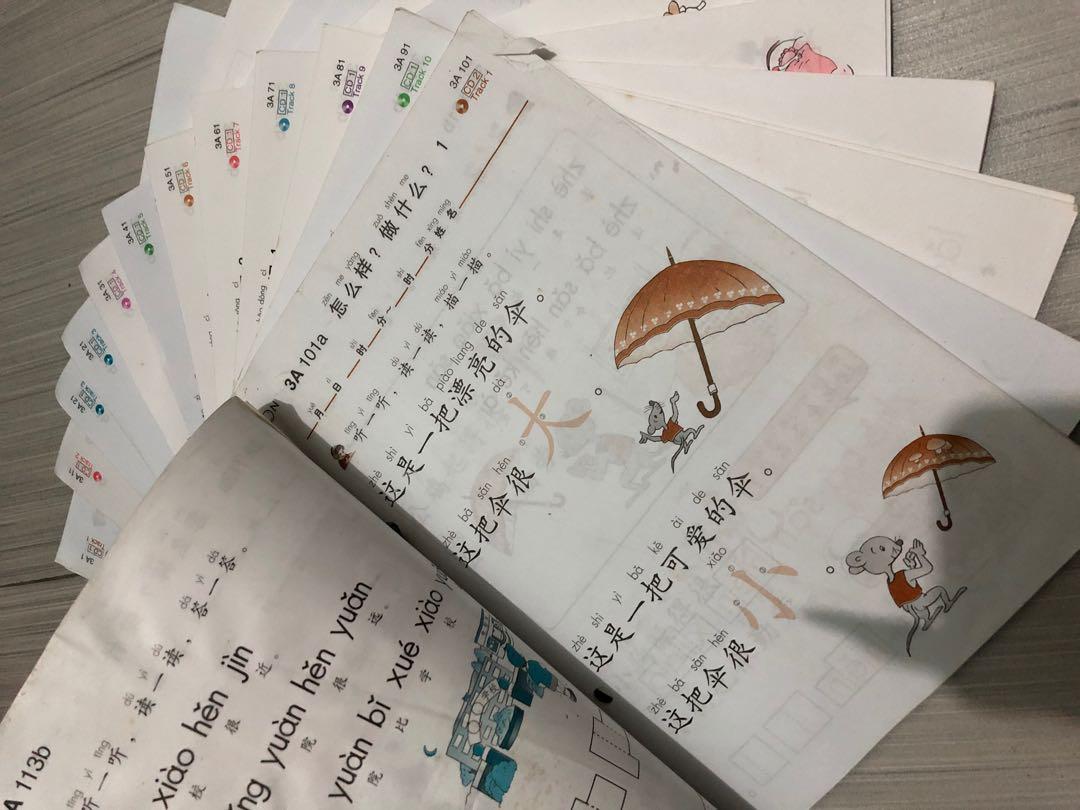 3A 101
CD 2
Track 1
3A 101a
zěn me yàng zuò shén me
怎么样？做什么？ 1
yuè rì shí fēn shí fēn xìng míng
月 日 时 分～ 时 分 姓名
tīng yì tīng dú yì dú miáo yì miáo
听一听，读一读，描一描。
zhè shì yì bǎ piào liang de sǎn
这是一把漂亮的伞。
zhè bǎ sǎn hěn dà
这把伞很大。
zhè shì yì bǎ kě ài de sǎn
这是一把可爱的伞。
zhè bǎ sǎn hěn xiǎo
这把伞很小。
3A 91
CD 1
Track 10
3A 81
CD 1
Track 9
3A 71
CD 1
Track 8
3A 61
CD 1
Track 7
3A 51
CD 1
Track 6
3A 41
CD 1
Track 5
3A 31
CD 1
Track 4
3A 21
Track 3
3A 11
3A 1
A 113b
yì tīng dú yì dú dá yì dá
听一听，读一读，答一答。
xiào hěn jìn
校 很 近。
yuàn hěn yuǎn
院 很 远。
yuàn bǐ xué xiào
院 比 学 校